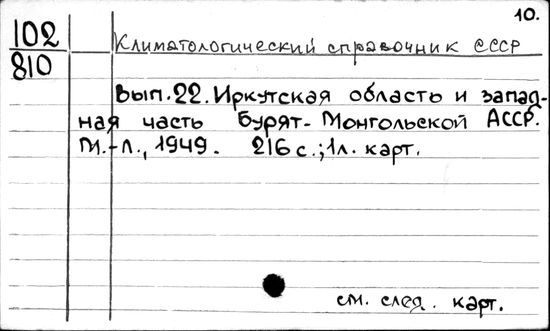 10.
102
810
Климатологический справочник СССР
Вып. 22. Иркутская область и запад-
ная часть Бурят-Монгольской АССР.
М.-Л., 1949. 216 с.; 1л. карт.
см. след. карт.